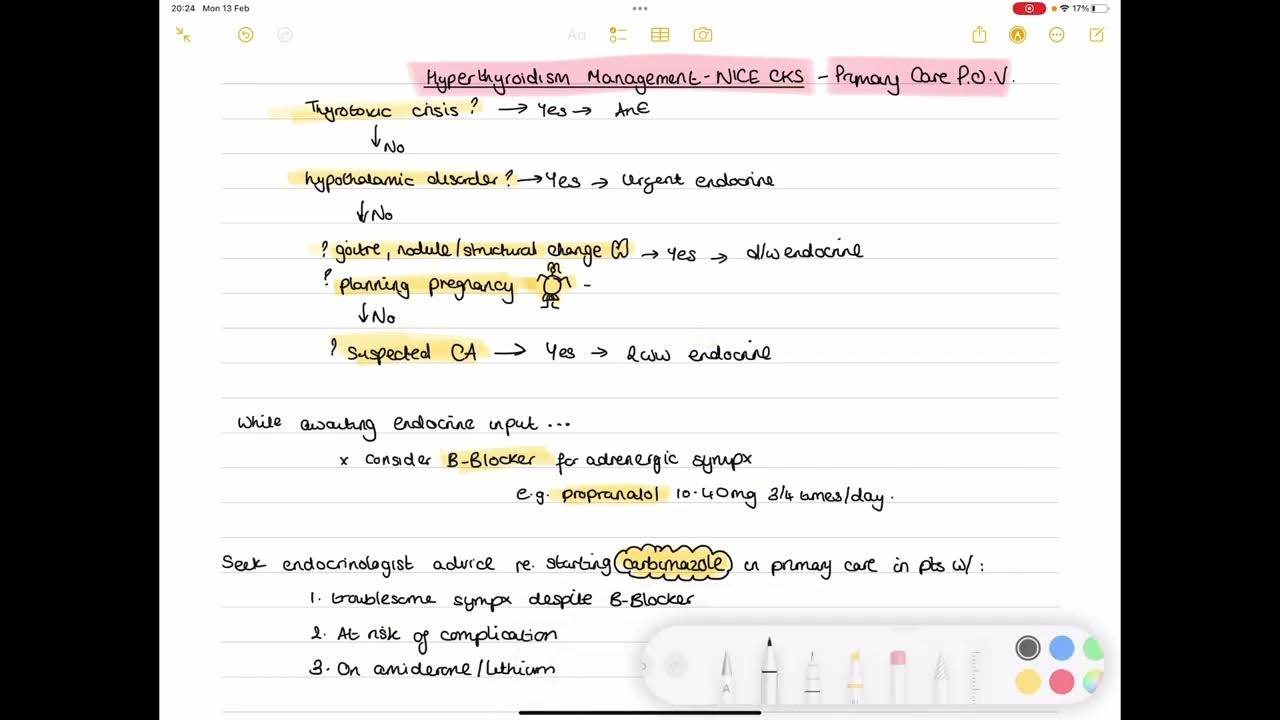 20:24 Mon 13 Feb
17%
Aa
Hyperthyroidism Management - NICE CKS - Primary Care P.O.V.
Thyrotoxic crisis? → Yes → AnE
↓ No
hypothalamic disorder? → Yes → Urgent endocrine
↓ No
? goitre, nodule/structural change → Yes → d/w endocrine
? planning pregnancy -
↓ No
? suspected CA → Yes → 2ww endocrine
While awaiting endocrine input ...
x consider B-Blocker for adrenergic sympx
e.g. propranalol 10-40mg 3/4 times/day.
Seek endocrinologist advice re. starting carbimazole in primary care in pts w/:
1. troublesome sympx despite B-Blocker
2. At risk of complication
3. On amiderone/lithium
A